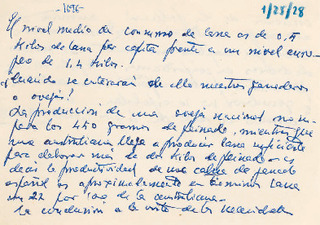 1/28/28
El nivel medio de consumo de lana es de 0,5
kilos de lana per capita frente a un nivel euro-
peo de 1,4 kilos.
¿Cuando se enteraran de ello nuestros ganaderos
o ovejas?
La producción de una oveja nacional no su-
pera los 450 gramos de peinado, mientras que
una australiana llega a producir lana suficiente
para elaborar mas de dos kilo de peinado - es
decir la productividad de una cabeza de ganado
español es aproximadamente en terminos lana
un 22 por 100 de la australiana -
La conclusión a la vista de las necesidades